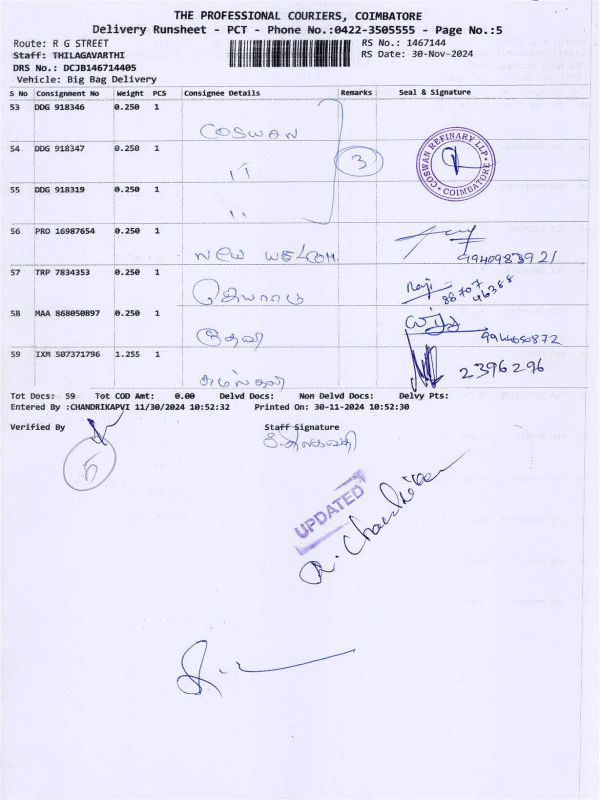 THE PROFESSIONAL COURIERS, COIMBATORE
Delivery Runsheet - PCT - Phone No.:0422-3505555 - Page No.:5
Route: R G STREET
RS No.: 1467144
Staff: THILAGAVARTHI
RS Date: 30-Nov-2024
DRS No.: DCJB146714405
Vehicle: Big Bag Delivery
S No Consignment No Weight PCS Consignee Details Remarks Seal & Signature
53 DDG 918346 0.250 1
COSWAN
54 DDG 918347 0.250 1
3
COSWAN REFINARY LLP COIMBATORE
''
55 DDG 918319 0.250 1
''
56 PRO 16987654 0.250 1
NEW WELCOM.
9940983921
57 TRP 7834353 0.250 1
Raji 88707 46388
58 MAA 868050897 0.250 1
தேவி
9944650872
59 IXM 507371796 1.255 1
2396296
Tot Docs: 59 Tot COD Amt: 0.00 Delvd Docs: Non Delvd Docs: Delvy Pts:
Entered By :CHANDRIKAPVI 11/30/2024 10:52:32 Printed On: 30-11-2024 10:52:30
Verified By Staff Signature
5
UPDATED